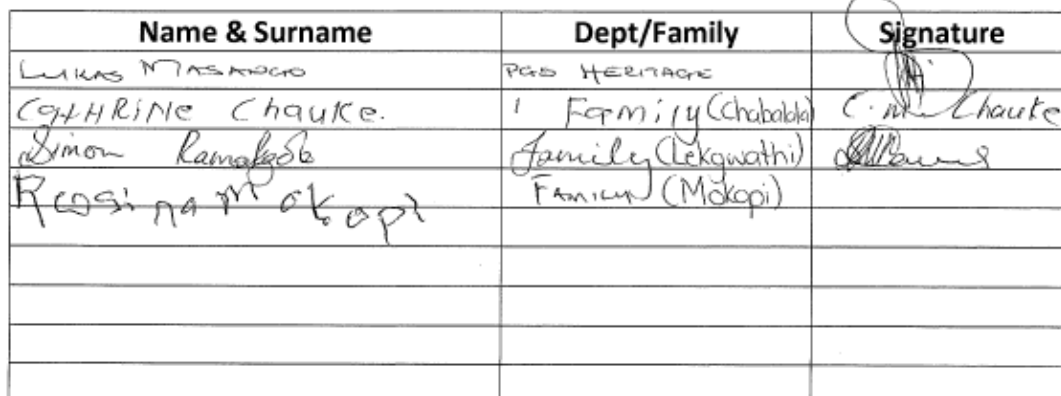 Name & Surname Dept/Family Signature
LUKAS MASANGO PGS HERITAGE
CATHRINE Chauke. 1 Family (Chabalala) C. Chauke
Simon Family (Lekgwathi)
Regina Mokopi Family (Mokopi)